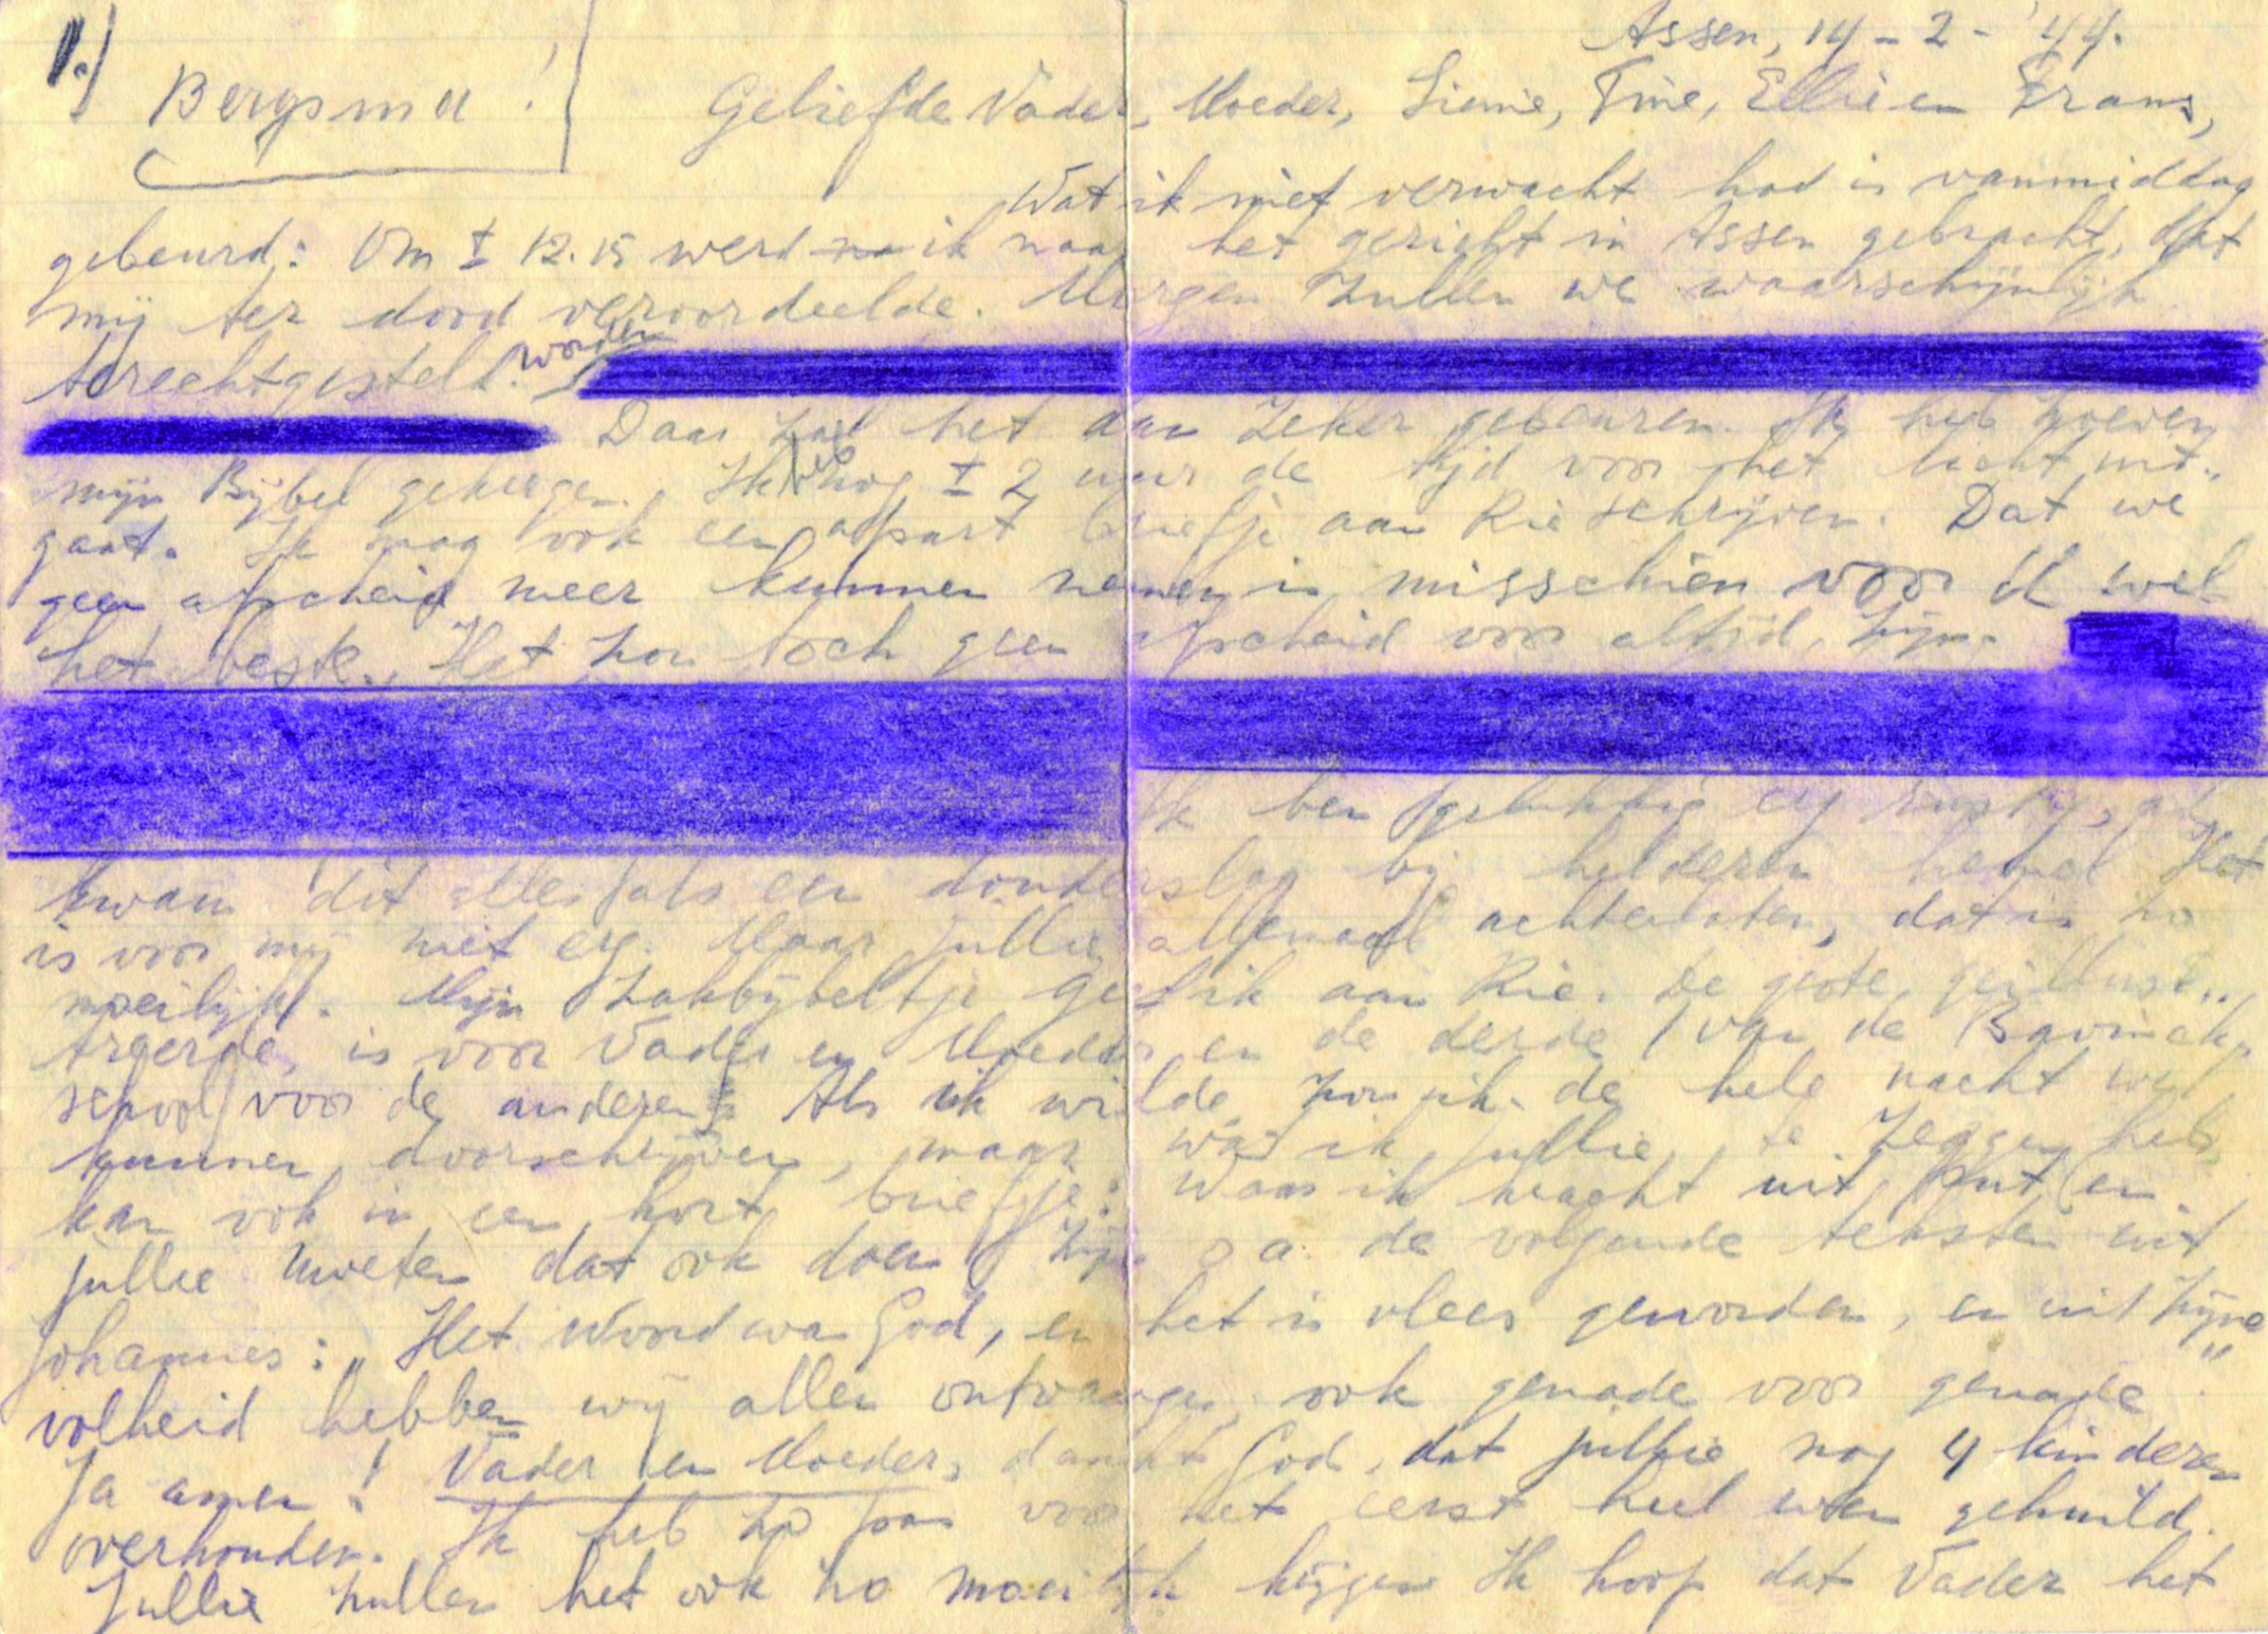 1.)
Assen, 14-2-'44.
Bergsma!
Geliefde Vader, Moeder, Sienie, Tine, Ellie en Frans,
Wat ik niet verwacht had is vanmiddag
gebeurd: Om ± 12.15 werd ik naar het gericht in Assen gebracht, dat
mij ter dood veroordeelde. Morgen zullen we waarschijnlijk
terechtgesteld worden.
Daar zal het dan zeker gebeuren. Ik heb zoeven
mijn Bijbel gekregen. Ik heb nog ± 2 uur de tijd voor het licht uit-
gaat. Ik mag ook een apart briefje aan Rie schrijven. Dat we
geen afscheid meer kunnen nemen is misschien voor U wel
het beste. Het zou toch geen afscheid voor altijd zijn.
Ik ben gelukkig erg rustig, al
kwam dit alles als een donderslag bij helderen hemel. Het
is voor mij niet erg. Maar jullie allemaal achterlaten, dat is zo
moeilijk. Mijn zakbijbeltje geef ik aan Rie. De grote, geïllust-
reerde, is voor Vader en Moeder, en de derde (van de Bavinck-
school) voor de anderen. Als ik wilde zou ik de hele nacht wel
kunnen doorschrijven, maar wat ik jullie te zeggen heb,
kan ook in een kort briefje: Waar ik kracht uit put (en
jullie moeten dat ook doen) zijn o.a. de volgende teksten uit
Johannes: „Het Woord was God, en het is vlees geworden, en uit zijne
volheid hebben wij allen ontvangen, ook genade voor genade".
Ja amen! Vader en Moeder, dankt God, dat jullie nog 4 kinderen
overhouden. Ik heb zo pas voor het eerst heel even gehuild.
Jullie zullen het ook zo moeilijk krijgen. Ik hoop dat Vader het